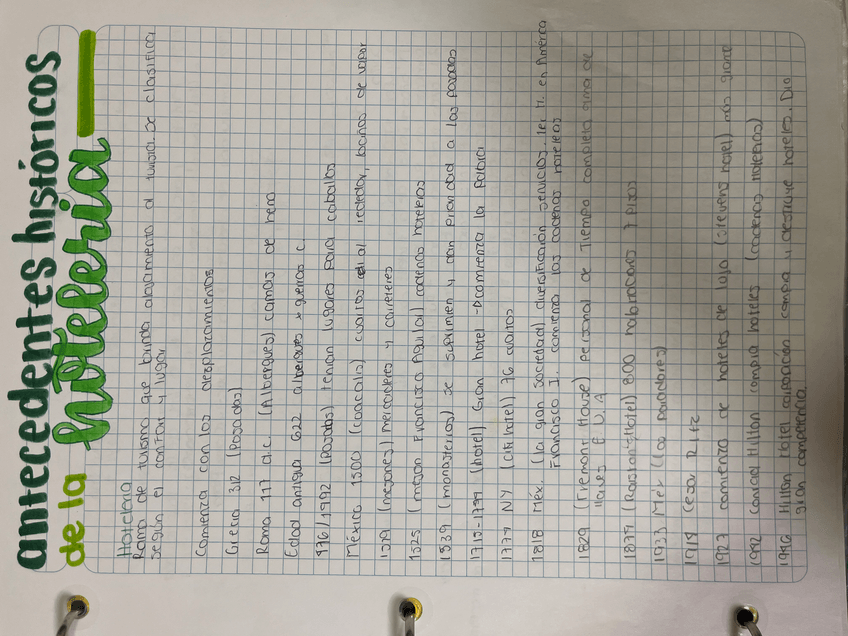 antecedentes históricos
de la hotelería
Hotelería
Ramo de turismo que brinda alojamiento al turista. Se clasifica
según el confort y lugar
Comienza con los desplazamientos
Grecia 312 (Posadas)
Roma 117 d.c. (Albergues) camas de heno
Edad antigua 622 albergues x guerras c.
476/1492 (posadas) tenían lugares para caballos
México 1300 (coacallis) cuartos al rededor, baños de vapor
(mesones) mercaderes y carreteros
1525 (meson Francisco Aguilar) cadenas hoteleras
1539 (monasterios) se suprimen y dan prioridad a las posadas
(hotel) Gran hotel comienza la palabra
NY (citi hotel) 76 cuartos
1818 Méx. (la gran sociedad) diversificación servicios. 1er H. en América
Francisco I. comienza las cadenas hoteleras
1829 (Tremont House) personal de tiempo completo ama de
llaves E.U.A
800 habitaciones 7 pisos
1933 Mex (los paradores)
Cesar Ritz
1927 comienzo de hoteles de lujo (stevens hotel) más grande
Conrad Hilton compra hoteles (cadenas hoteleras)
Hilton Hotel corporación compra y destruye hoteles. Dio
gran competencia.